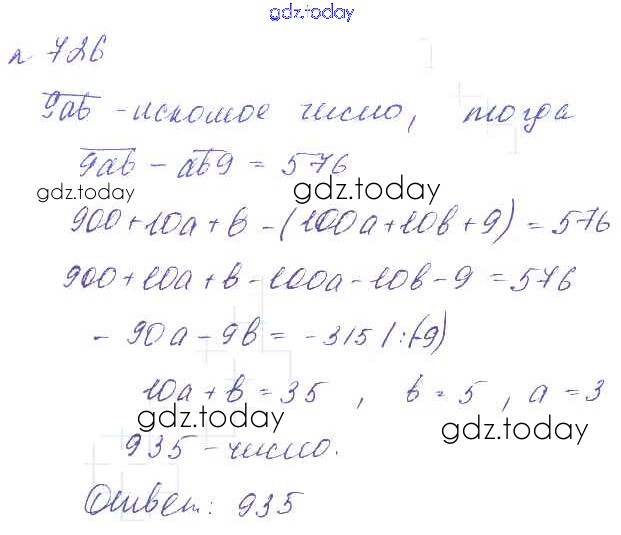 gdz.today
n 726
9ab - искомое число, тогда
9ab - ab9 = 576
gdz.today gdz.today
900+10a+b-(100a+10b+9)=576
900+10a+b-100a-10b-9=576
- 90a-9b= -315 /:(-9)
10a+b=35 , b=5, a=3
gdz.today gdz.today
935-число.
Ответ: 935